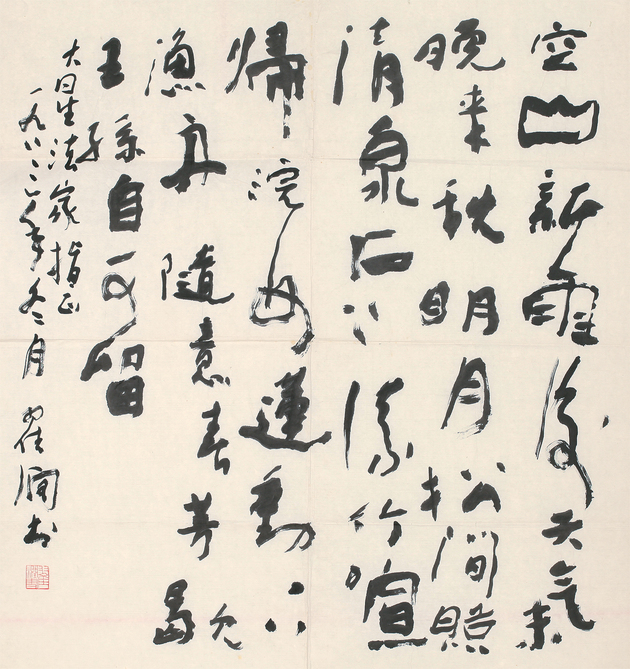 空山新雨後天氣
晚来秋明月松間照
清泉石上流竹喧
歸浣女蓮動下
漁舟隨意春芳歇
王孫自可留
大星法家指正
一九八二年冬月 翟潤书